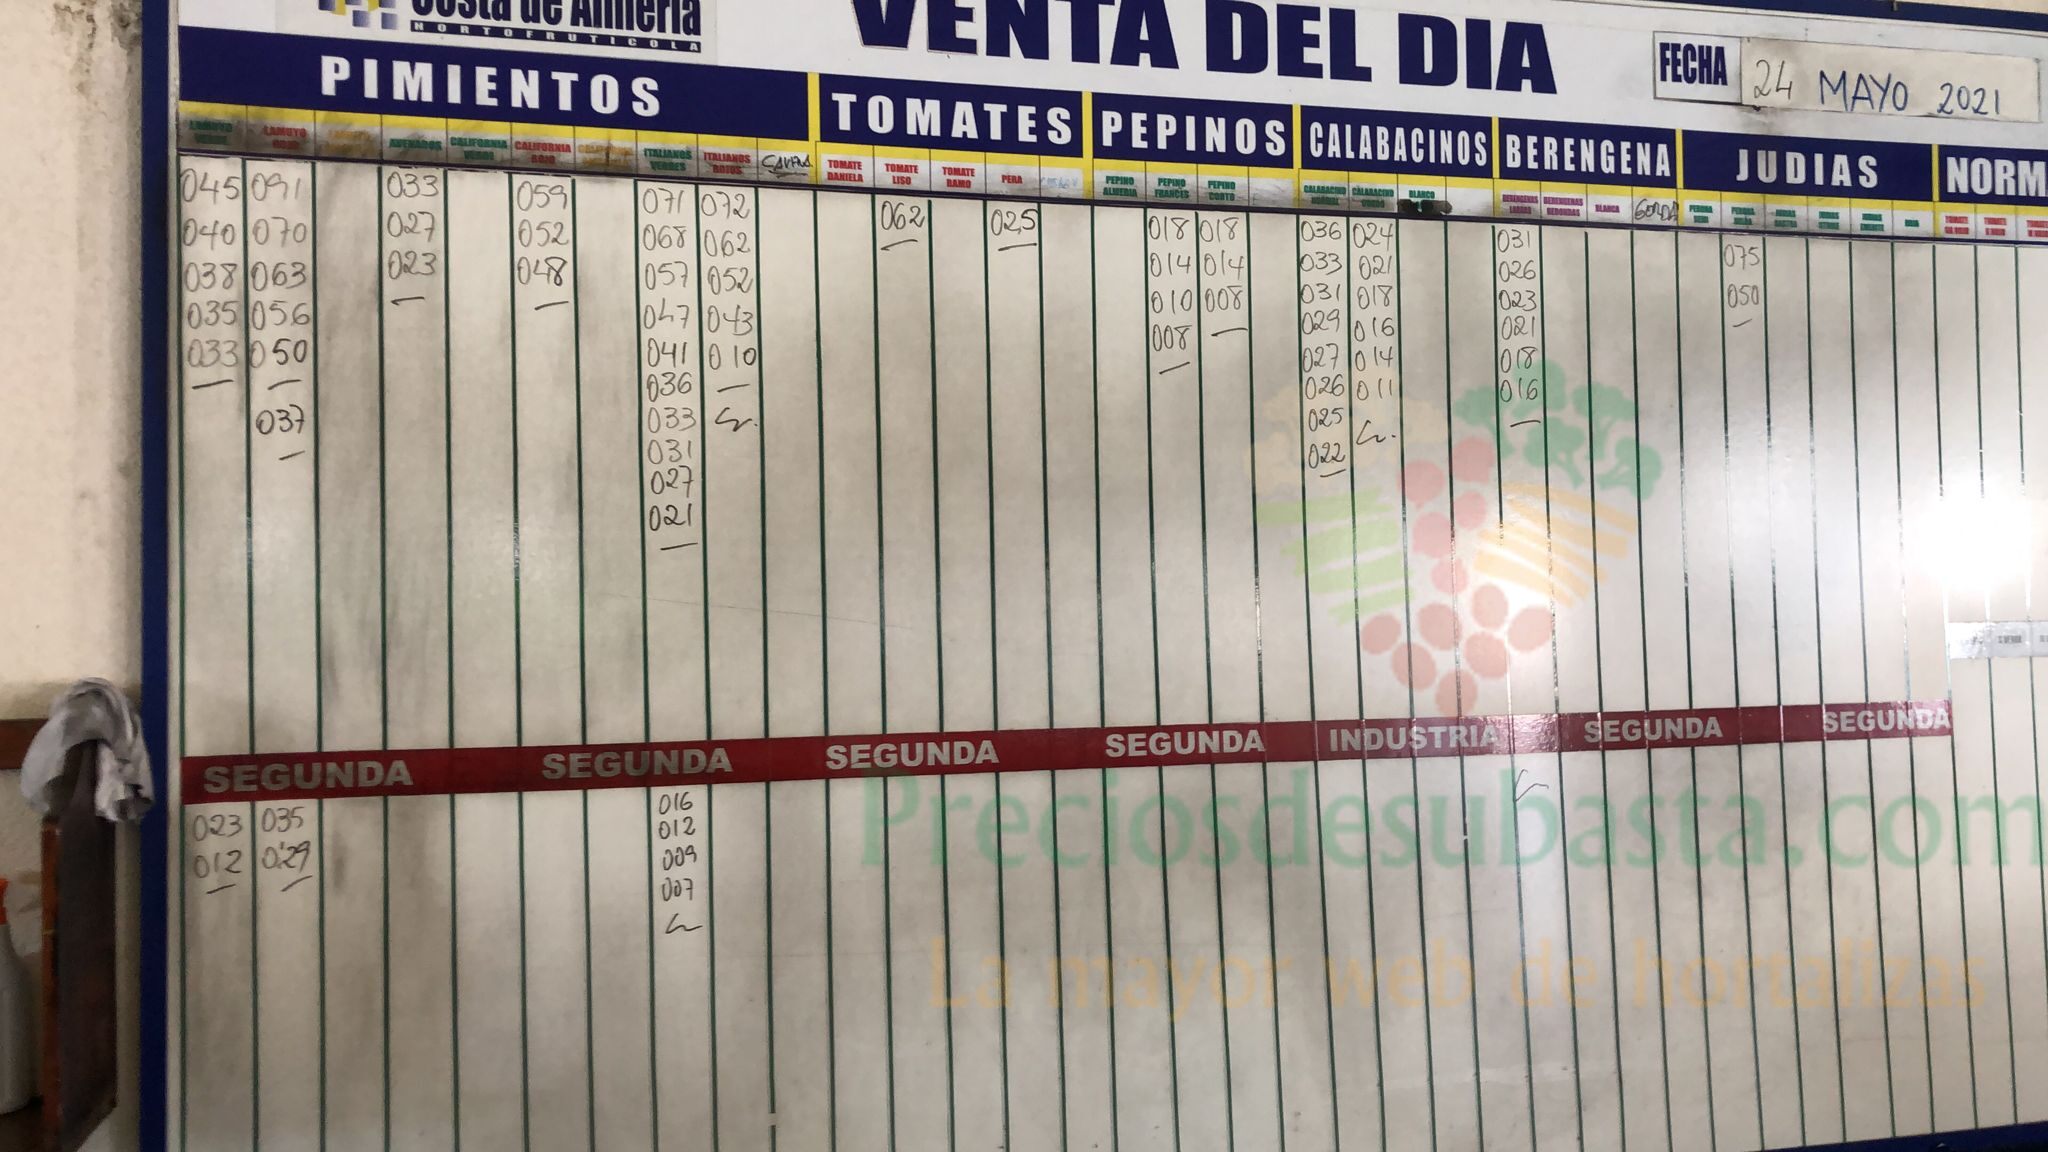 Costa de Almería
HORTOFRUTICOLA
VENTA DEL DIA
FECHA 24 MAYO 2021
PIMIENTOS TOMATES PEPINOS CALABACINOS BERENGENA JUDIAS NORM
LAMUYO VERDE LAMUYO ROJO AVENAROS CALIFORNIA VERDE CALIFORNIA ROJO ITALIANOS VERDES ITALIANOS ROJOS TOMATE DANIELA TOMATE LISO TOMATE RAMO PERA PEPINO ALMERIA PEPINO FRANCES PEPINO CORTO CALABACINO NORMAL CALABACINO GORDO BLANCO BERENGENAS LARGAS BERENGENAS REDONDAS BLANCA GORDA
045 091 033 059 071 072 062 025 018 018 036 024 031 075
040 070 027 052 068 062 014 014 033 021 026 050
038 063 023 048 057 052 010 008 031 018 023
035 056 047 043 008 029 016 021
033 050 041 010 027 014 018
036 026 011 016
037 033 025
031 022
027
021
SEGUNDA SEGUNDA SEGUNDA SEGUNDA INDUSTRIA SEGUNDA SEGUNDA
023 035 016
012 029 012
009
007
Preciosdesubasta.com
La mayor web de hortalizas